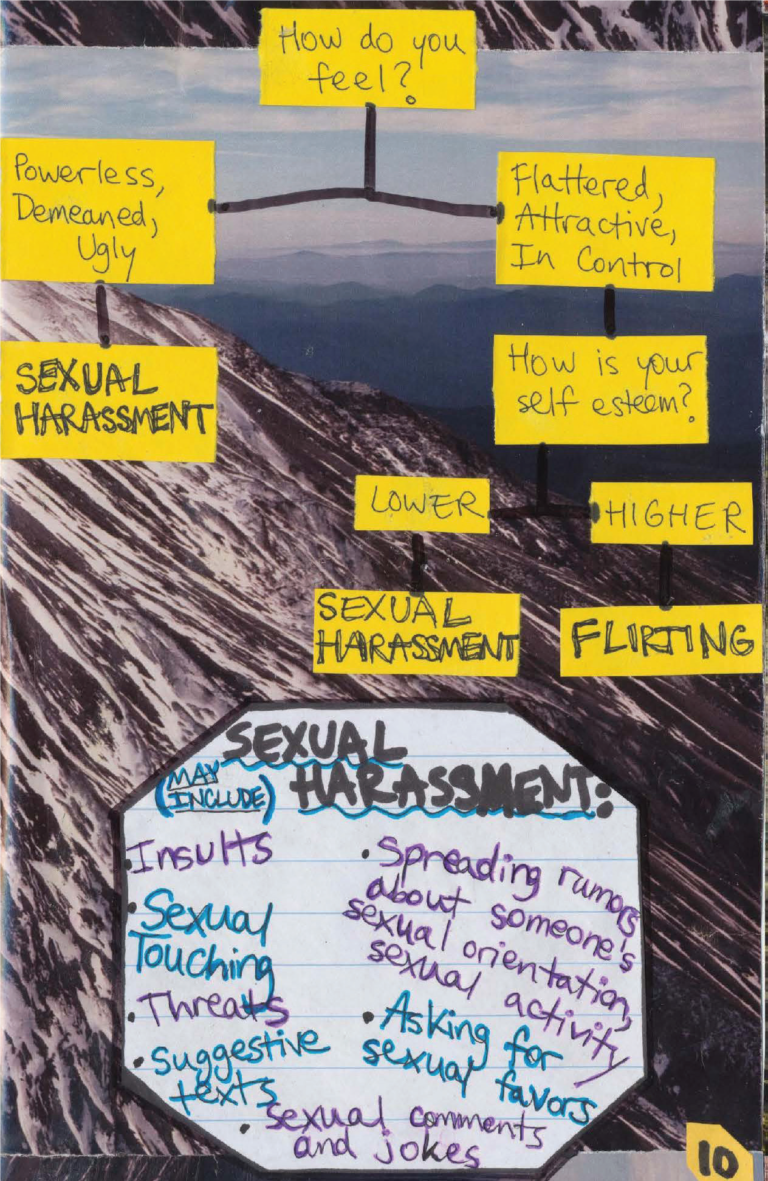 How do you
feel?
Powerless,
Demeaned,
Ugly
Flattered,
Attractive,
In Control
SEXUAL
HARASSMENT
How is your
self esteem?
LOWER
HIGHER
SEXUAL
HARASSMENT
FLIRTING
SEXUAL
(MAY
INCLUDE)
HARASSMENT:
• Insults
• Sexual
Touching
• Threats
• suggestive
texts
• Spreading rumors
about someone's
sexual orientation,
sexual activity
• Asking for
sexual favors
• sexual comments
and jokes
10